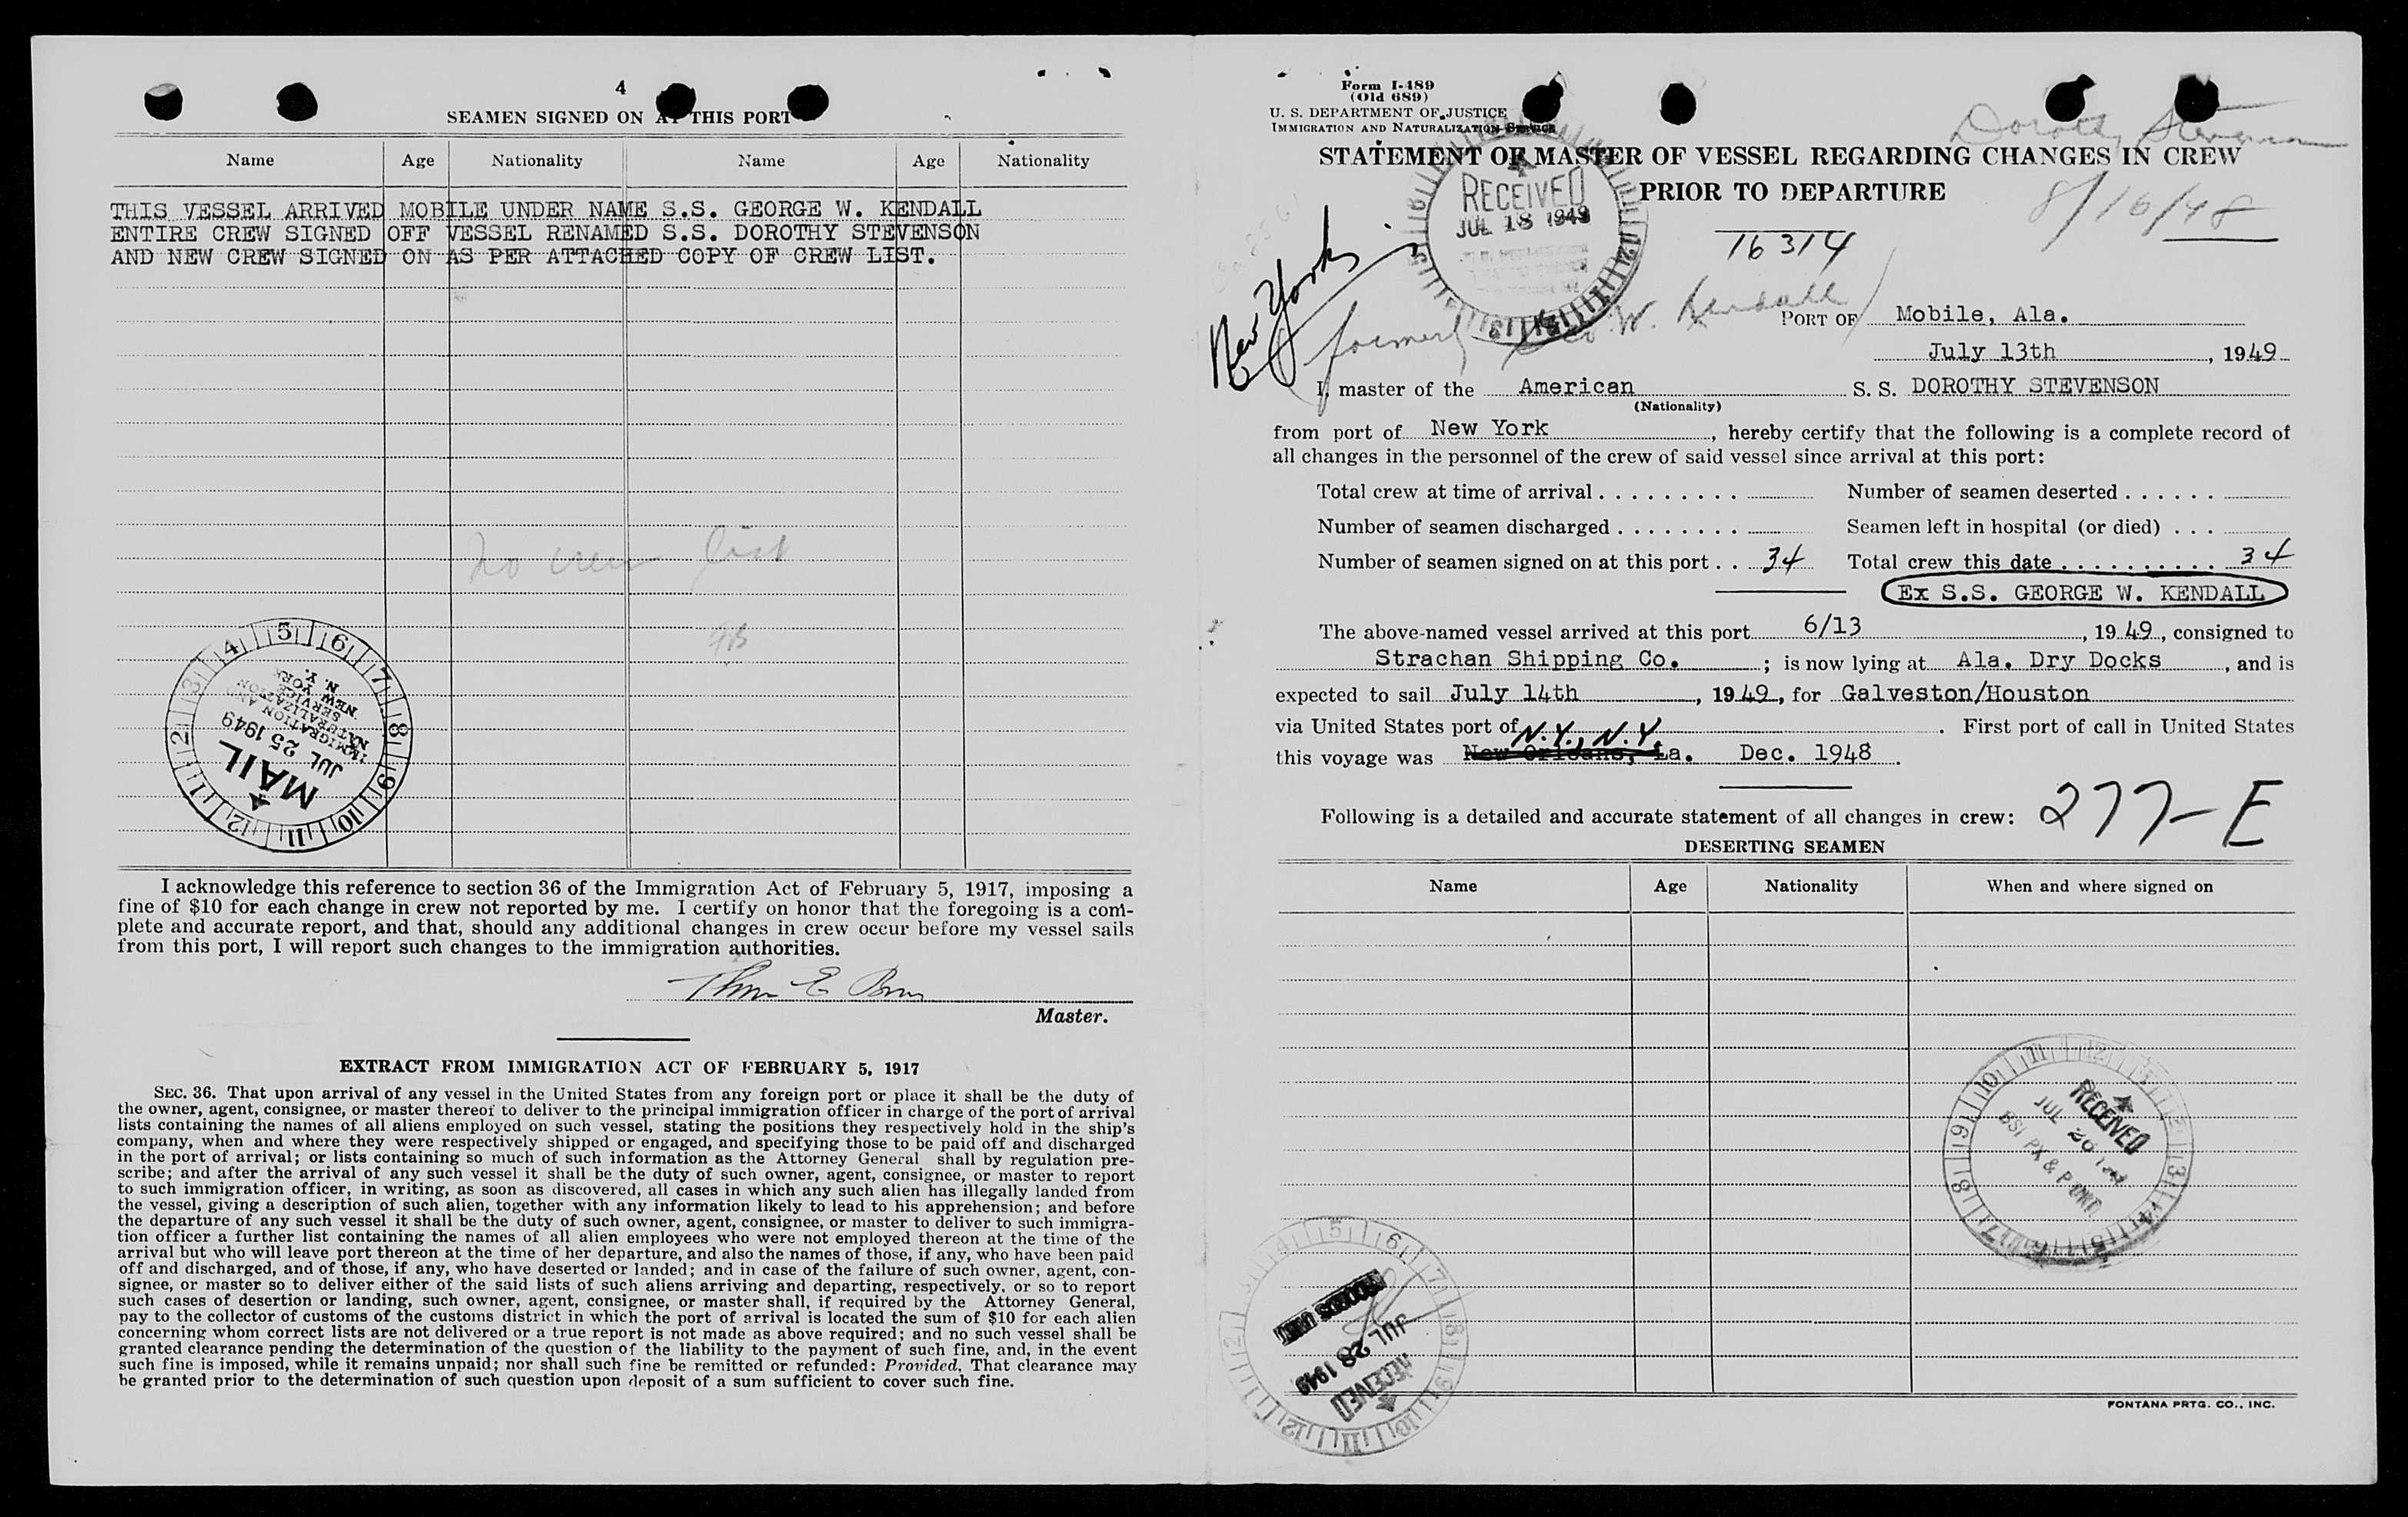 4
SEAMEN SIGNED ON AT THIS PORT
Name Age Nationality Name Age Nationality
THIS VESSEL ARRIVED MOBILE UNDER NAME S.S. GEORGE W. KENDALL
ENTIRE CREW SIGNED OFF VESSEL RENAMED S.S. DOROTHY STEVENSON
AND NEW CREW SIGNED ON AS PER ATTACHED COPY OF CREW LIST.
No crew list
5 6 7 8 9 10 11 12 1 2 3 4
IMMIGRATION AND
NATURALIZATION
SERVICE
NEW YORK
N. Y.
JUL 25 1949
MAIL
I acknowledge this reference to section 36 of the Immigration Act of February 5, 1917, imposing a
fine of $10 for each change in crew not reported by me. I certify on honor that the foregoing is a com-
plete and accurate report, and that, should any additional changes in crew occur before my vessel sails
from this port, I will report such changes to the immigration authorities.
Master.
EXTRACT FROM IMMIGRATION ACT OF FEBRUARY 5, 1917
SEC. 36. That upon arrival of any vessel in the United States from any foreign port or place it shall be the duty of
the owner, agent, consignee, or master thereof to deliver to the principal immigration officer in charge of the port of arrival
lists containing the names of all aliens employed on such vessel, stating the positions they respectively hold in the ship's
company, when and where they were respectively shipped or engaged, and specifying those to be paid off and discharged
in the port of arrival; or lists containing so much of such information as the Attorney General shall by regulation pre-
scribe; and after the arrival of any such vessel it shall be the duty of such owner, agent, consignee, or master to report
to such immigration officer, in writing, as soon as discovered, all cases in which any such alien has illegally landed from
the vessel, giving a description of such alien, together with any information likely to lead to his apprehension; and before
the departure of any such vessel it shall be the duty of such owner, agent, consignee, or master to deliver to such immigra-
tion officer a further list containing the names of all alien employees who were not employed thereon at the time of the
arrival but who will leave port thereon at the time of her departure, and also the names of those, if any, who have been paid
off and discharged, and of those, if any, who have deserted or landed; and in case of the failure of such owner, agent, con-
signee, or master so to deliver either of the said lists of such aliens arriving and departing, respectively, or so to report
such cases of desertion or landing, such owner, agent, consignee, or master shall, if required by the Attorney General,
pay to the collector of customs of the customs district in which the port of arrival is located the sum of $10 for each alien
concerning whom correct lists are not delivered or a true report is not made as above required; and no such vessel shall be
granted clearance pending the determination of the question of the liability to the payment of such fine, and, in the event
such fine is imposed, while it remains unpaid; nor shall such fine be remitted or refunded: Provided, That clearance may
be granted prior to the determination of such question upon deposit of a sum sufficient to cover such fine.
Form I-489
(Old 689)
U. S. DEPARTMENT OF JUSTICE
IMMIGRATION AND NATURALIZATION SERVICE
Dorothy Stevenson
STATEMENT OF MASTER OF VESSEL REGARDING CHANGES IN CREW
PRIOR TO DEPARTURE
8/16/48
RECEIVED
JUL 18 1949
16314
New York
formerly Geo W. Kendall
PORT OF Mobile, Ala.
July 13th, 1949
I, master of the American S. S. DOROTHY STEVENSON
(Nationality)
from port of New York, hereby certify that the following is a complete record of
all changes in the personnel of the crew of said vessel since arrival at this port:
Total crew at time of arrival Number of seamen deserted
Number of seamen discharged Seamen left in hospital (or died)
Number of seamen signed on at this port 34 Total crew this date 34
Ex S.S. GEORGE W. KENDALL
The above-named vessel arrived at this port 6/13, 1949, consigned to
Strachan Shipping Co.; is now lying at Ala. Dry Docks, and is
expected to sail July 14th, 1949, for Galveston/Houston
via United States port of N.Y., N.Y. First port of call in United States
this voyage was New Orleans, La. Dec. 1948.
Following is a detailed and accurate statement of all changes in crew: 277-E
DESERTING SEAMEN
Name Age Nationality When and where signed on
RECEIVED
JUL 26
BSI PX &
RECORDS UNIT
JUL 28 1949
RECEIVED
FONTANA PRTG. CO., INC.